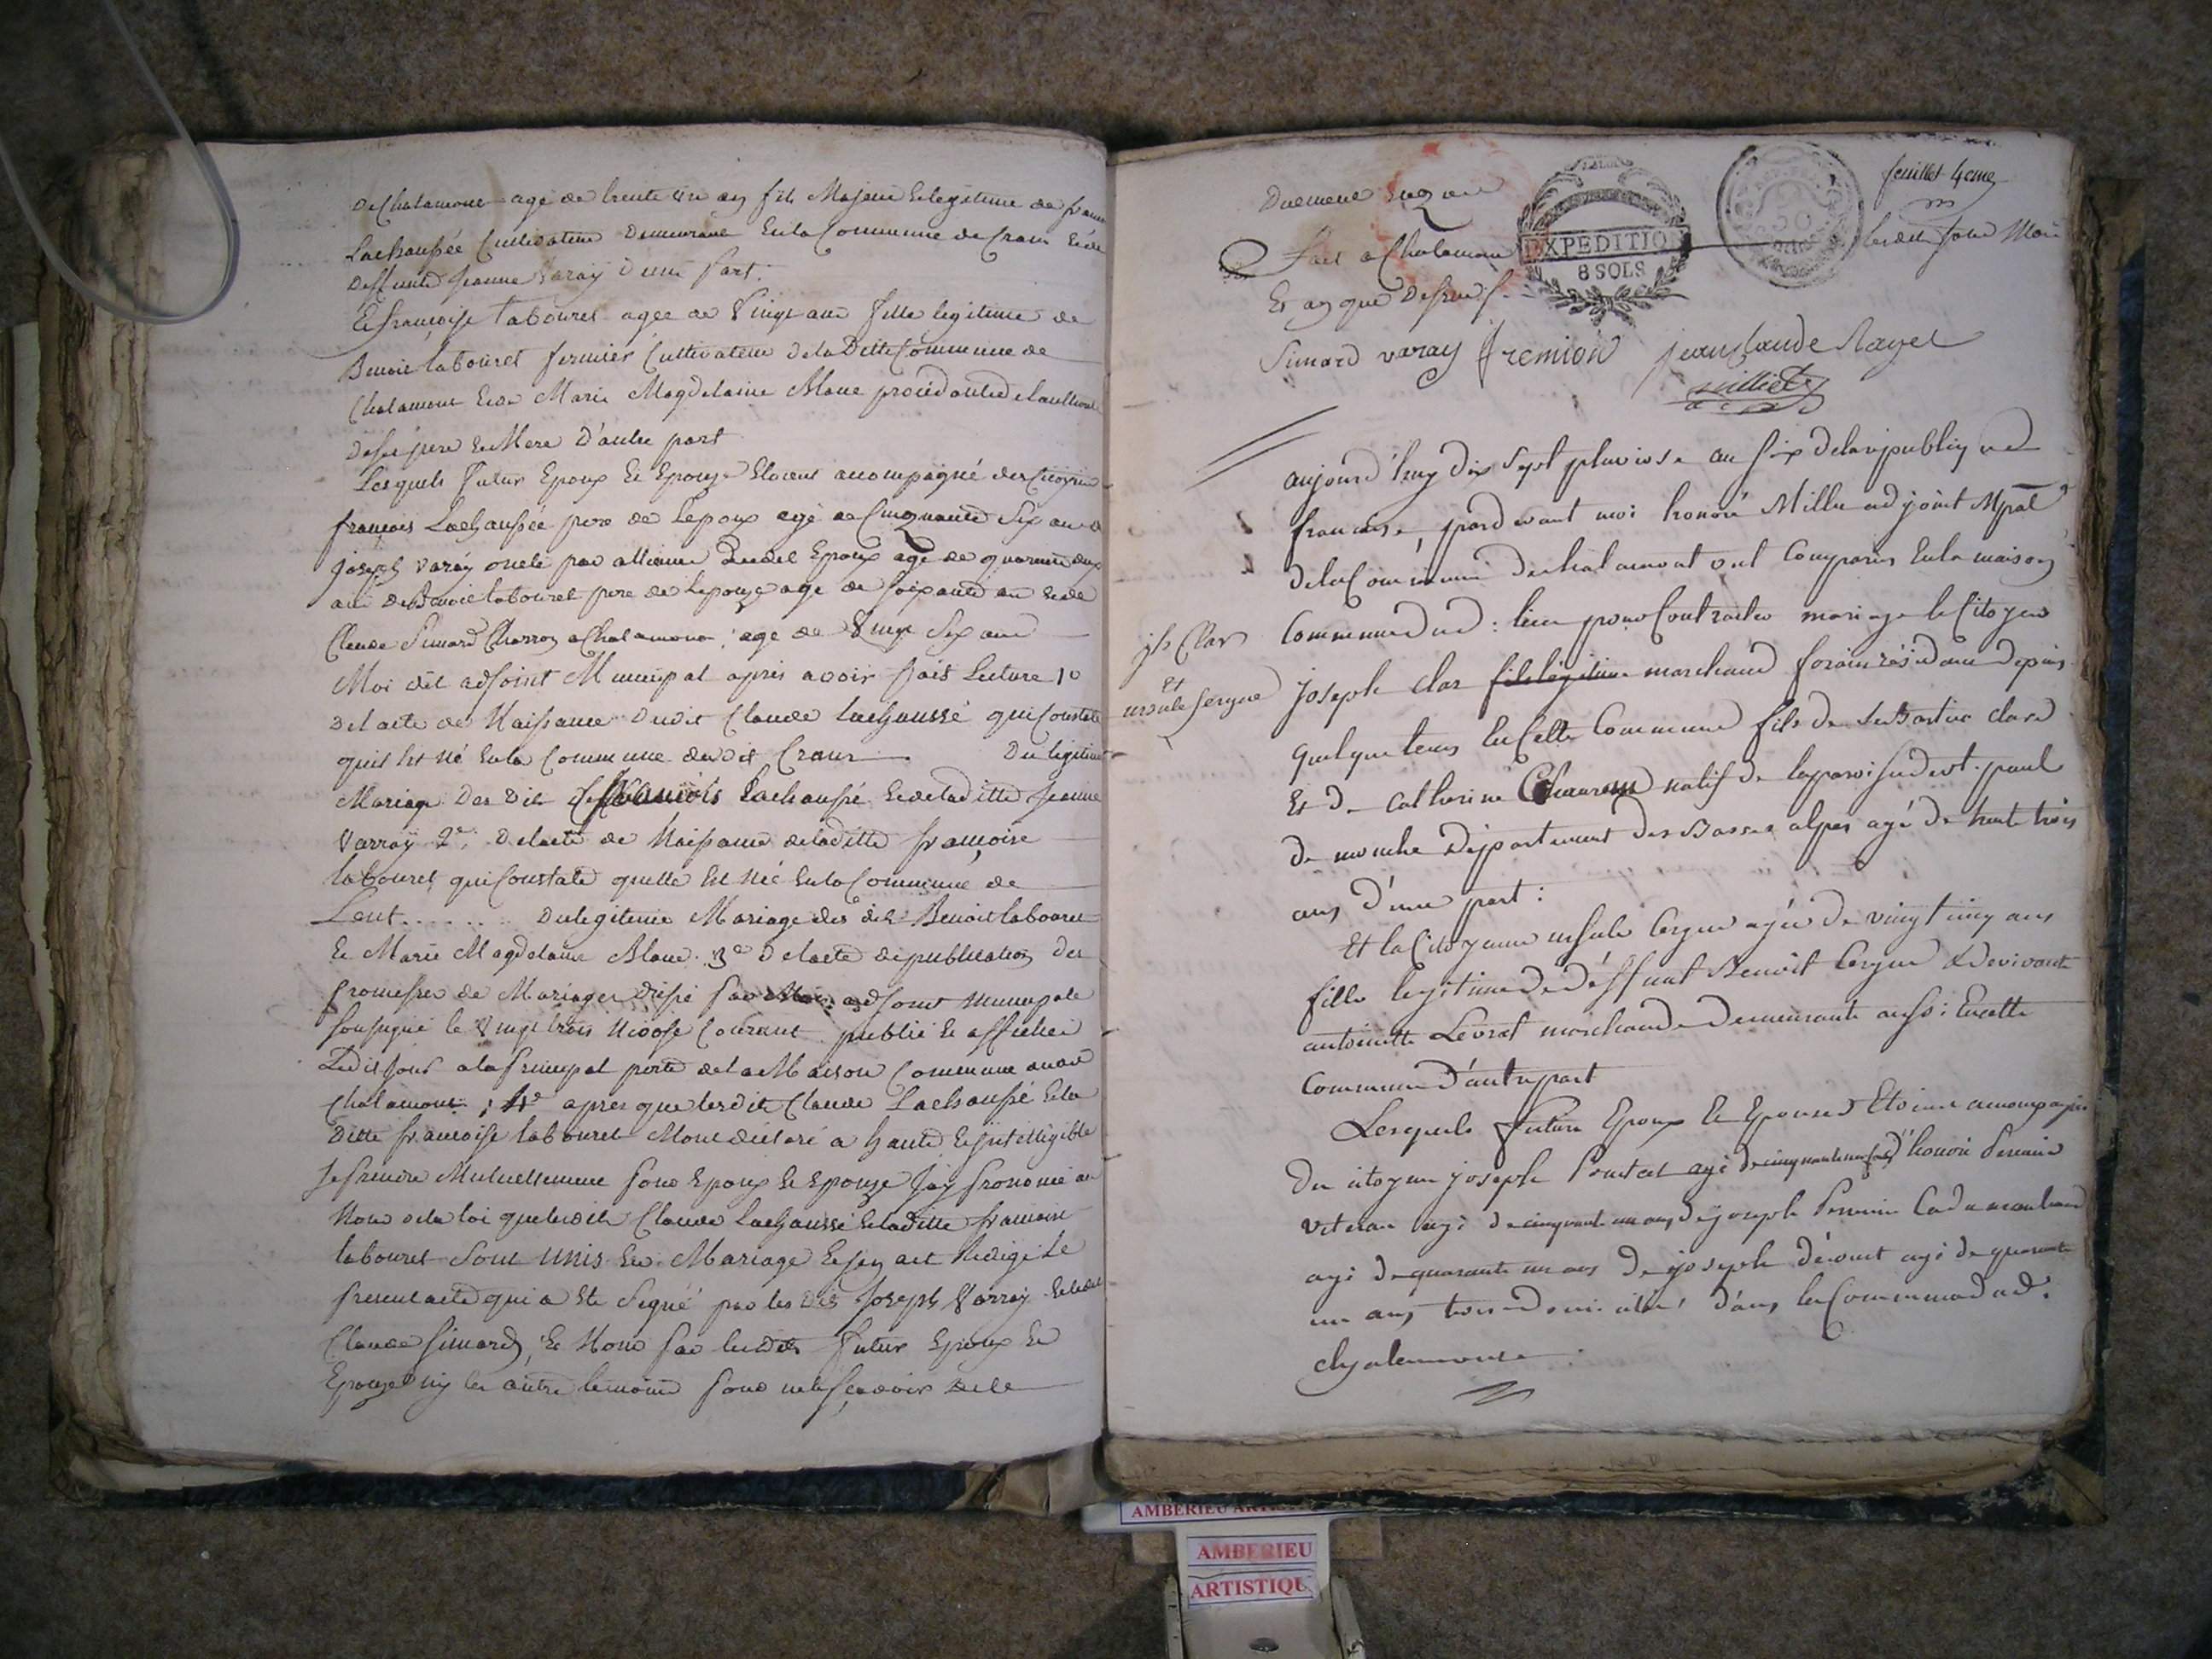 de Chalamont agé de trente un ans fils Majeur et legitime de
Lachaussée Cultivateur Demeurant En la Commune de Crans et de
Deffunte Jeanne Varay d'une part.
Et françoise Labouret agée de Vingt ans fille legitime de
Benoit labouret fermier Cultivateur de la Ditte Commune de
Chalamont et de Marie Magdelaine Blanc
de ses pere et Mere D'autre part
Lesquels futur Epoux et Epouze Etoient accompagné des Citoyens
françois Lachaussée pere de lepoux agé de Cinquante Six ans
joseph varay oncle par alliance dudit Epoux agé de quarente deux
ans de Benoit labouret pere de lepouze age de soixante an et de
Claude Simard Charron a Chalamont age de Vingt Six ans
Moi dit adjoint Municipal apres avoir fait Lecture 1o
de lacte de Naissance Dudit Claude lachaussé qui Constate
quil Est né En la Commune dudit Crans Du legitime
Mariage Des Dits françois Lachaussé et de la ditte Jeanne
Varray 2e De lacte de Naissance de la ditte françoise
labouret qui Constate quelle Est Née En la Commune de
Lent....... Du legitime Mariage des dits Benoit labouret
Et Marie Magdelaine Blanc. 3e de lacte de publication des
promesses de Mariage dréssé par Moi adjoint Municipale
soussigné le Vingt trois Nivose Courant publié Et affichée
Ledit Jour a la principal porte de la Maison Commune dudit
Chalamont ; 4e apres que lesdits Claude Lachaussé Et la
Ditte françoise labouret Mont déclaré a haute Et intelligible
Se prendre Mutuellement pour Epoux Et Epouze Jay prononcé au
Nom de la loi que lesdits Claude Lachaussé Et laditte françoise
labouret Sont unis En Mariage Et jen ait Redigé le
present acte qui a Ete Signé par les Dits Joseph Varray Et ledit
Claude Simard, Et Non par lesdits futur Epoux Et
Epouze ny les autre temoins pour ne le sçavoir de ce
feuillet 4eme
Duement
EXPEDITION
8 SOLS
Fait a Chalamont lesdits Jour Moi
Et an que Dessus
Simard varay fremion jean Claude Rayet
aujourd'huy dix sept pluviose an six de la republique
francaise, pardevant moi honoré Millie adjoint Mpal
de la Commune de chalamont ont Comparus En la maison
Commune dud: lieu pour Contracter mariage le Citoyen
jh Clar
et
ursule sergue
joseph clar fils légitime marchand forain résidant depuis
quelque tems En Cette Commune fils de Clare
Et de Catherine natif de la paroisse de st. paul
de département des Basses alpes agé de trente trois
ans d'une part :
Et la Citoyenne ursule agée de vingt cinq ans
fille legitime de déffunt Benoit Et de vivante
antoinette Levrat marchande Demeurante aussi En cette
Commune d'autre part
Lesquels futur Epoux Et Epouse Etoient accompagnés
du citoyen joseph agé de d'honoré Perrin
veteran agé de cinquante un ans, de joseph Perrin Cadet marchand
agé de quarante un ans de joseph agé de quarante
un ans tous domiciliés dans la Commune dud.
chalamont
AMBERIEU
AMBERIEU
ARTISTIQU